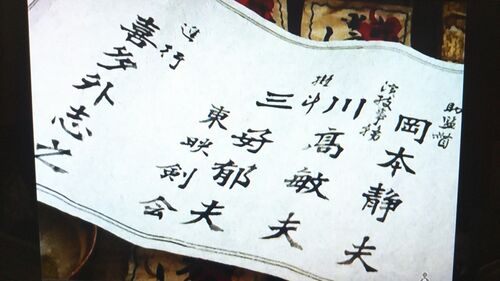 助監督
岡本静夫
演技事務
川高敏夫
擬斗
三好郁夫
東映剣会
進行
喜多外志之